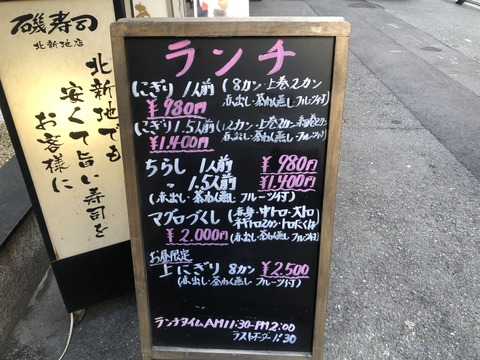 磯寿司
北新地店
北新地でも
安くて旨い寿司を
お客様に
ランチ
にぎり 1人前 (8カン・上巻2カン
¥980円 赤出し・茶わん蒸し・フルーツ付)
にぎり1.5人前 (12カン・上巻2カン
¥1.400円 赤出し・茶わん蒸し・フルーツ付)
ちらし 1人前 ¥980円
〃 1.5人前 ¥1.400円
(赤出し・茶わん蒸し フルーツ付)
マグロづくし (赤身・中トロ・大トロ
¥2.000円 (赤出し・茶わん蒸し フルーツ付)
お昼限定
上にぎり 8カン ¥2.500
(赤出し・茶わん蒸し・フルーツ付)
ランチタイムAM11:30-PM2:00
ラストオーダー1:30